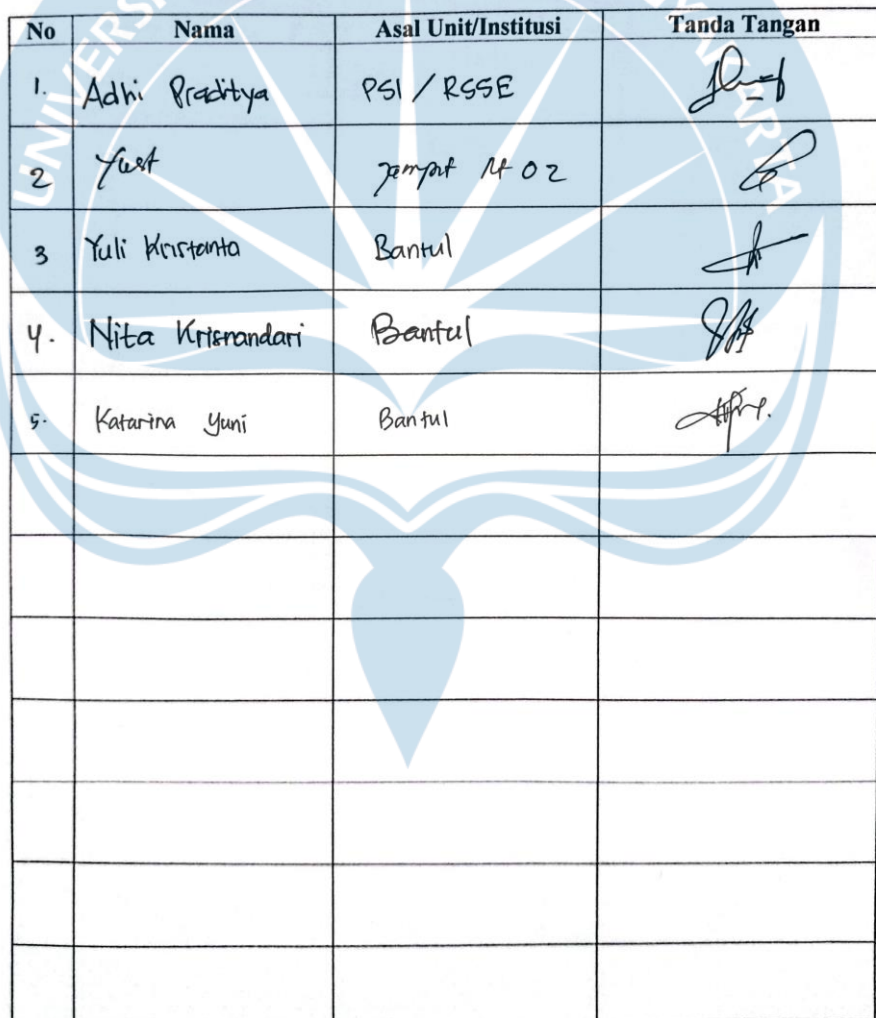 UNIVERS
KARTA
No Nama Asal Unit/Institusi Tanda Tangan
1. Adhi Praditya PSI / RSSE
2 Yust
3 Yuli Kristanto Bantul
4. Nita Krisnandari Bantul
5. Katarina Yuni Bantul